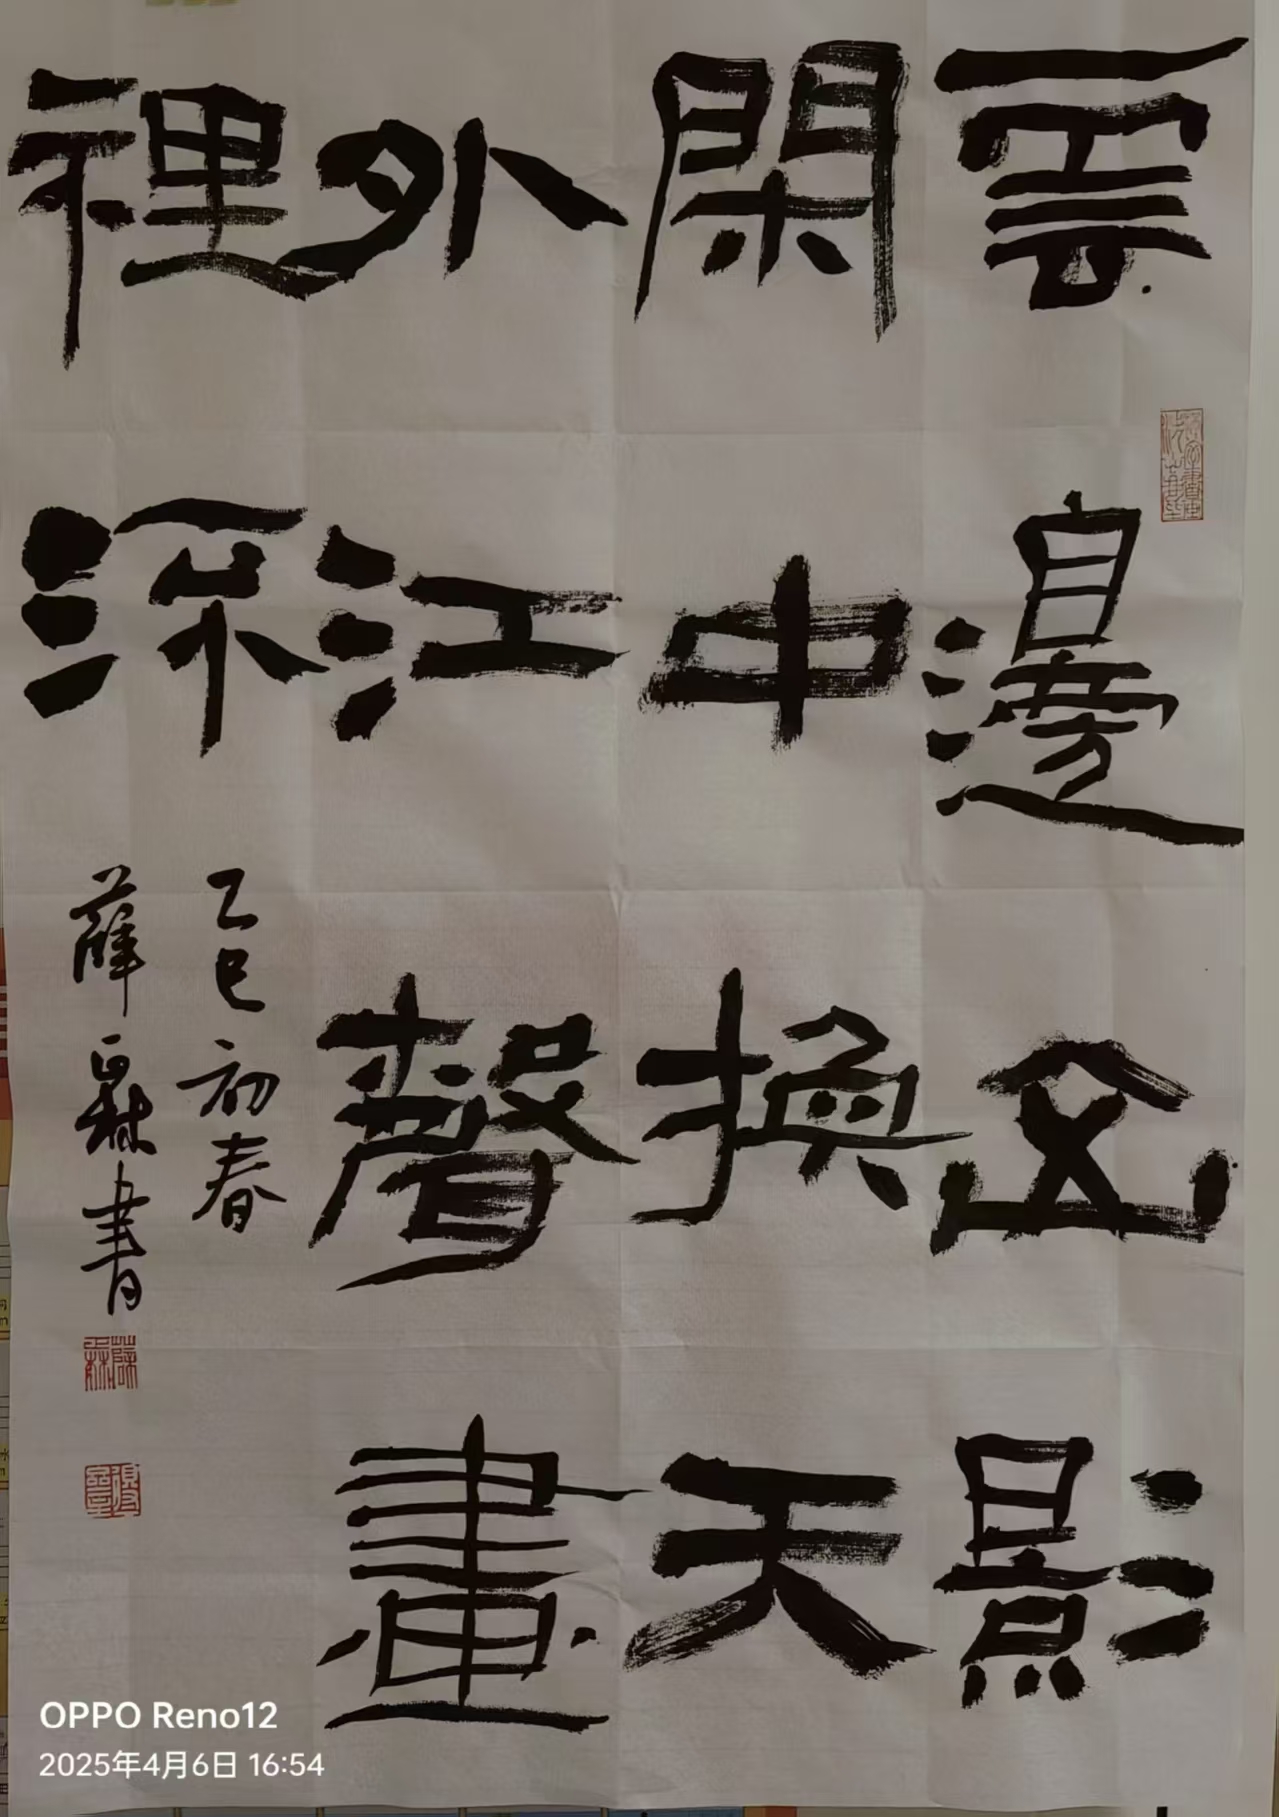 雲邊影
閑中換天
外江聲畫
裡深
乙巳初春
薛書
OPPO Reno12
2025年4月6日 16:54